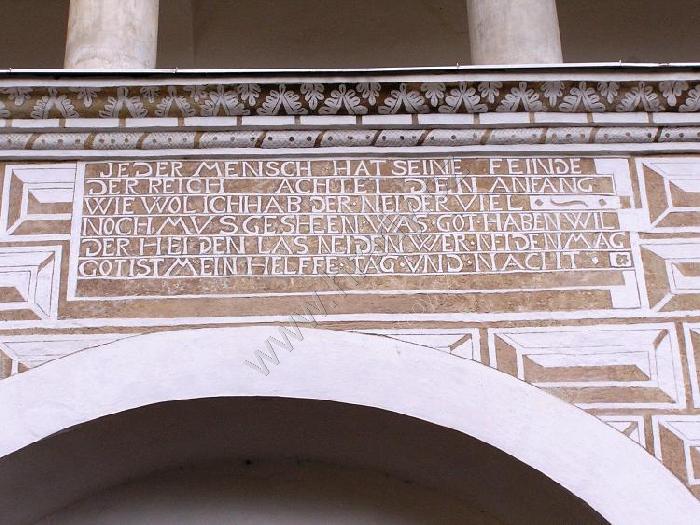 JEDER MENSCH HAT SEINE FEINDE
DER REICH ACHTET DEN ANFANG
WIE WOL ICH HAB DER NEIDER VIEL
NOCH MUS GESHEEN WAS GOT HABEN WIL
DER HEIDEN LAS NEIDEN WER NEIDEN MAG
GOT IST MEIN HELFFE TAG UND NACHT